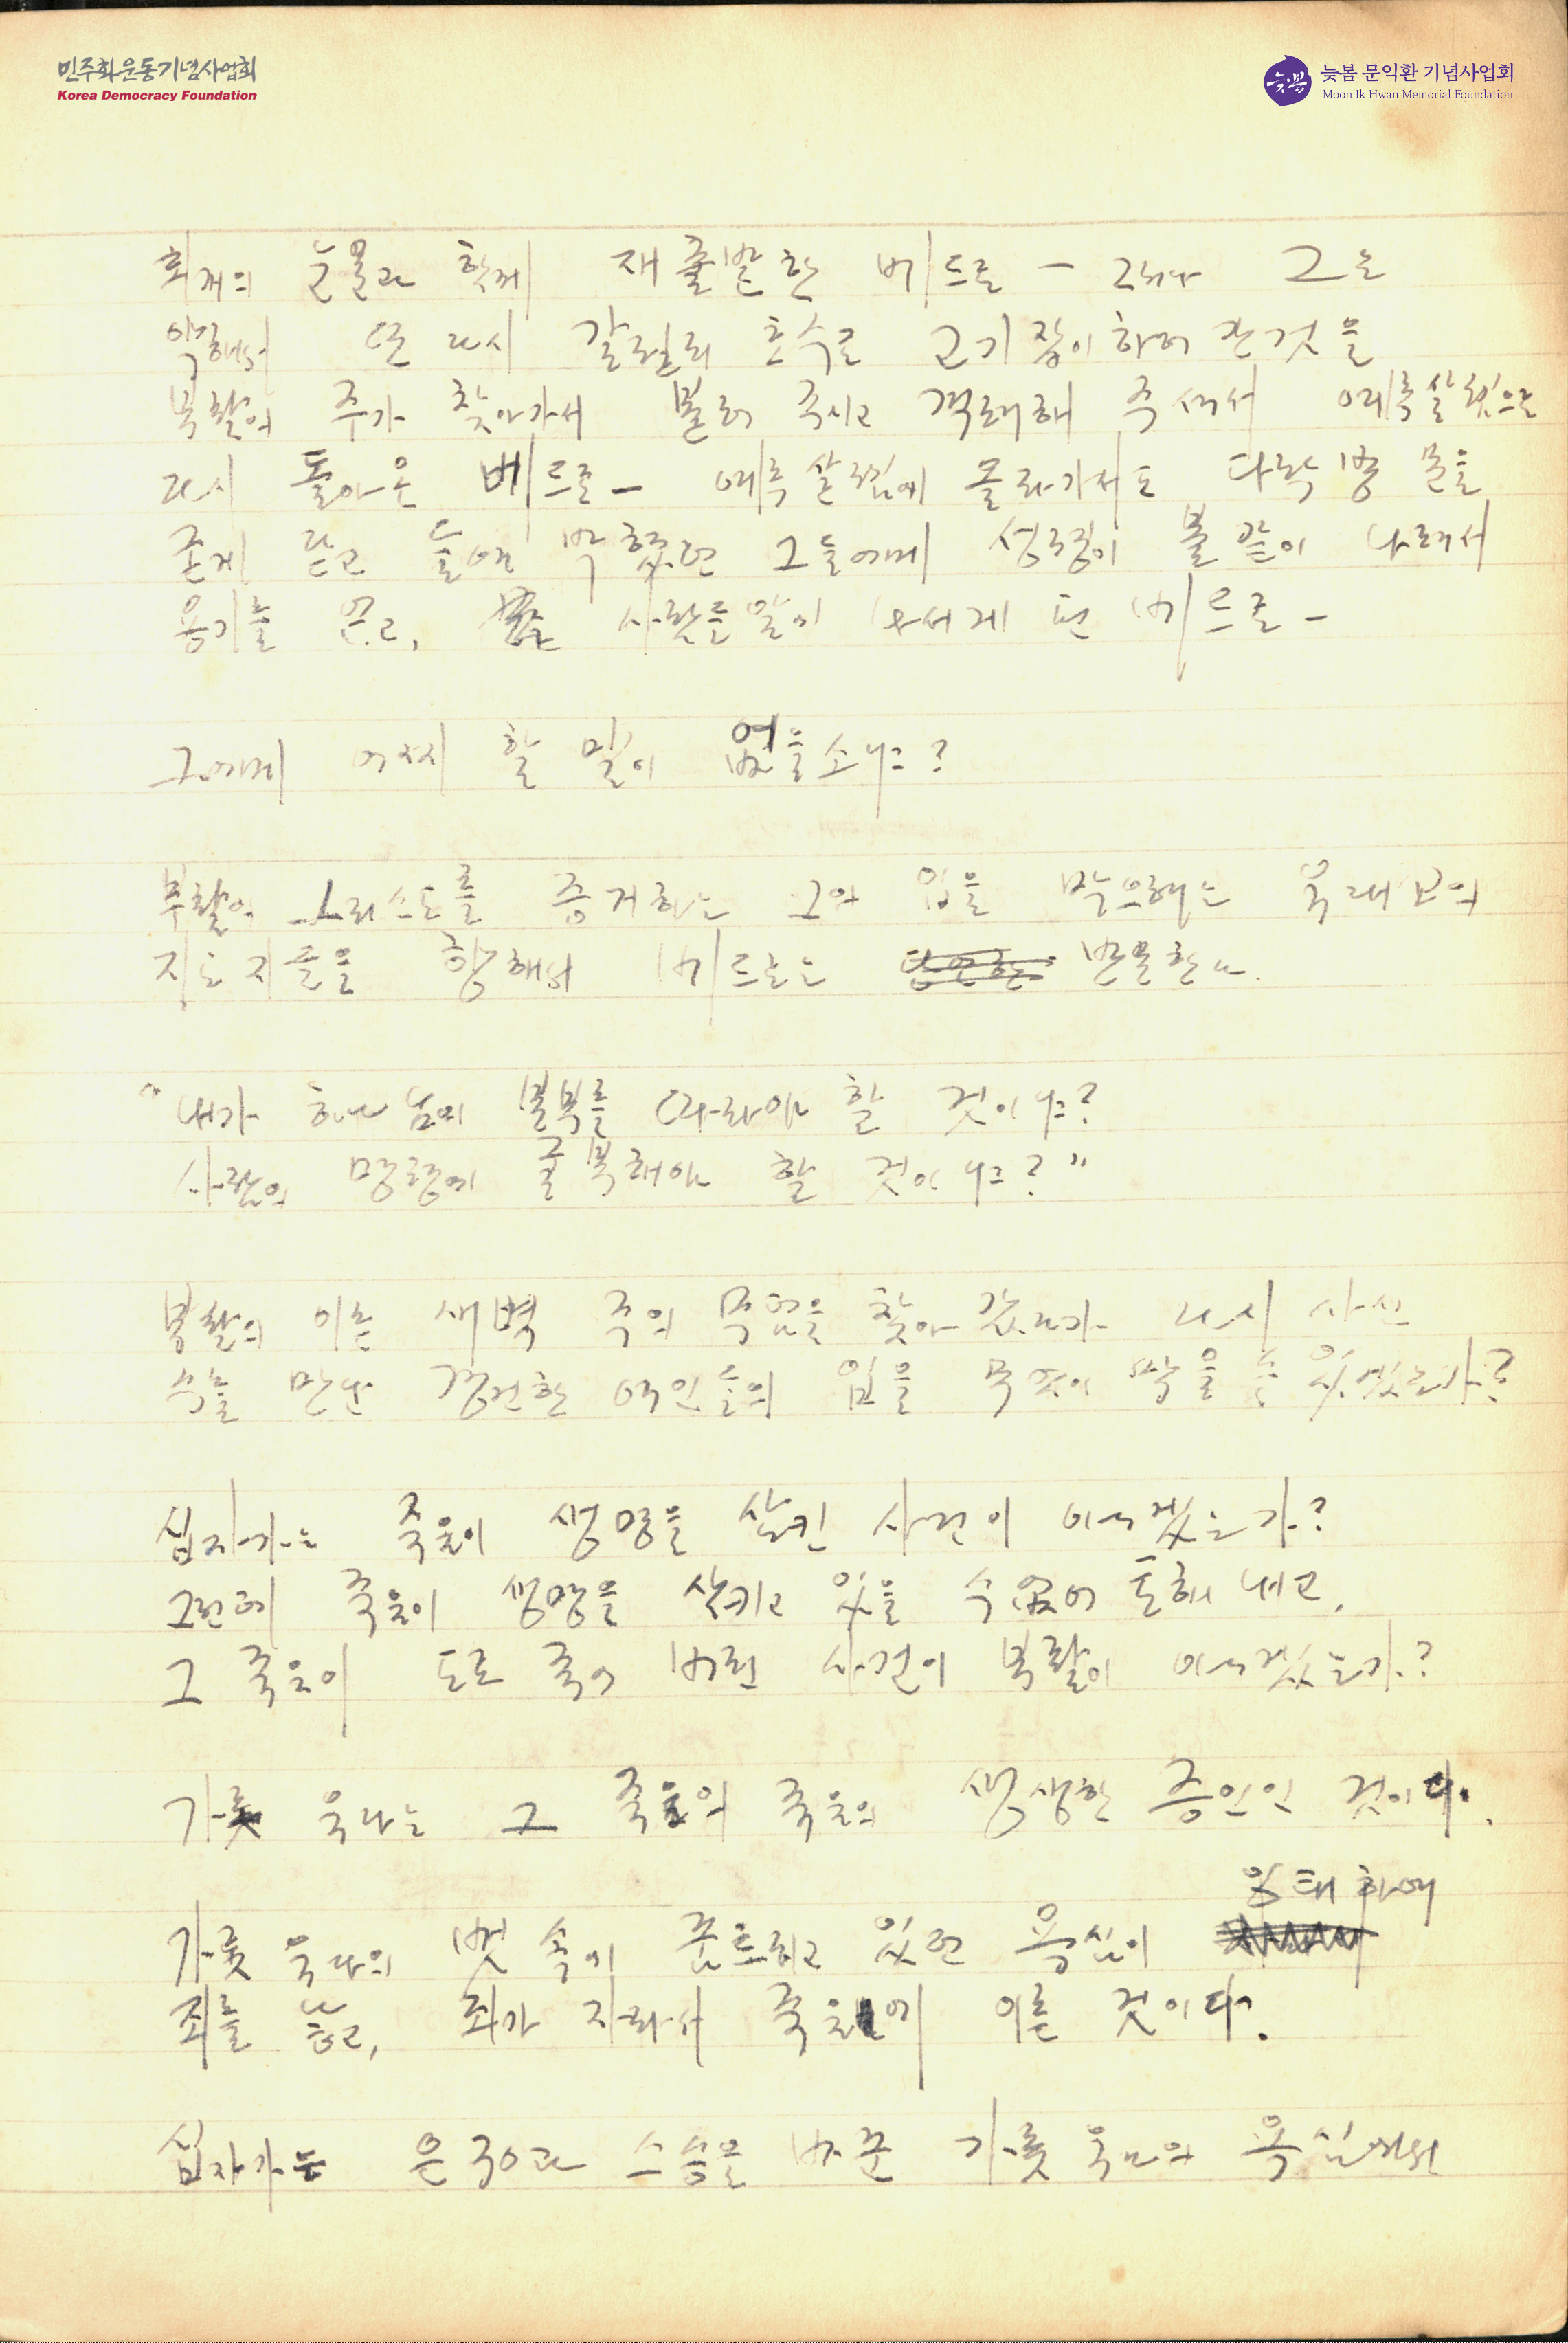 민주화운동기념사업회
Korea Democracy Foundation
늦봄 문익환 기념사업회
Moon Ik Hwan Memorial Foundation
회개의 눈물과 함께 재출발한 베드로 — 그러나 그는
약해서 또 다시 갈릴리 호수로 고기잡이하러 간것을
부활의 주가 찾아가서 불러 주시고 격려해 주셔서 예루살렘으로
다시 돌아온 베드로 — 예루살렘에 올라가서도 다락방 문을
굳게 닫고 들어 박혔던 그들에게 성령이 불같이 나려서
용기를 얻고, 사람들앞에 나서게 된 베드로 —
그에게 어찌 할 말이 없을소냐?
부활의 그리스도를 증거하는 그의 입을 막으려는 유대교의
지도자들을 향해서 베드로는 반문한다.
"내가 하나님의 분부를 따라야 할 것이냐?
사람의 명령에 굴복해야 할 것이냐?"
부활의 이른 새벽 주의 무덤을 찾아 갔다가 다시 사신
주를 만난 경건한 여인들의 입을 무엇이 막을 수 있었는가?
십자가는 죽음이 생명을 삼킨 사건이 아니겠는가?
그런데 죽음이 생명을 삼키고 있을 수 없어 토해 내고,
그 죽음이 도로 죽어 버린 사건이 부활이 아니겠는가?
가룟 유다는 그 죽음의 죽음의 생생한 증인인 것이다.
가룟 유다의 뼛 속에 꿈트리고 있던 욕심이 잉태하여
죄를 낳고, 죄가 자라서 죽음에 이른 것이다.
십자가는 은 30과 스승을 바꾼 가룟 유다의 욕심에서